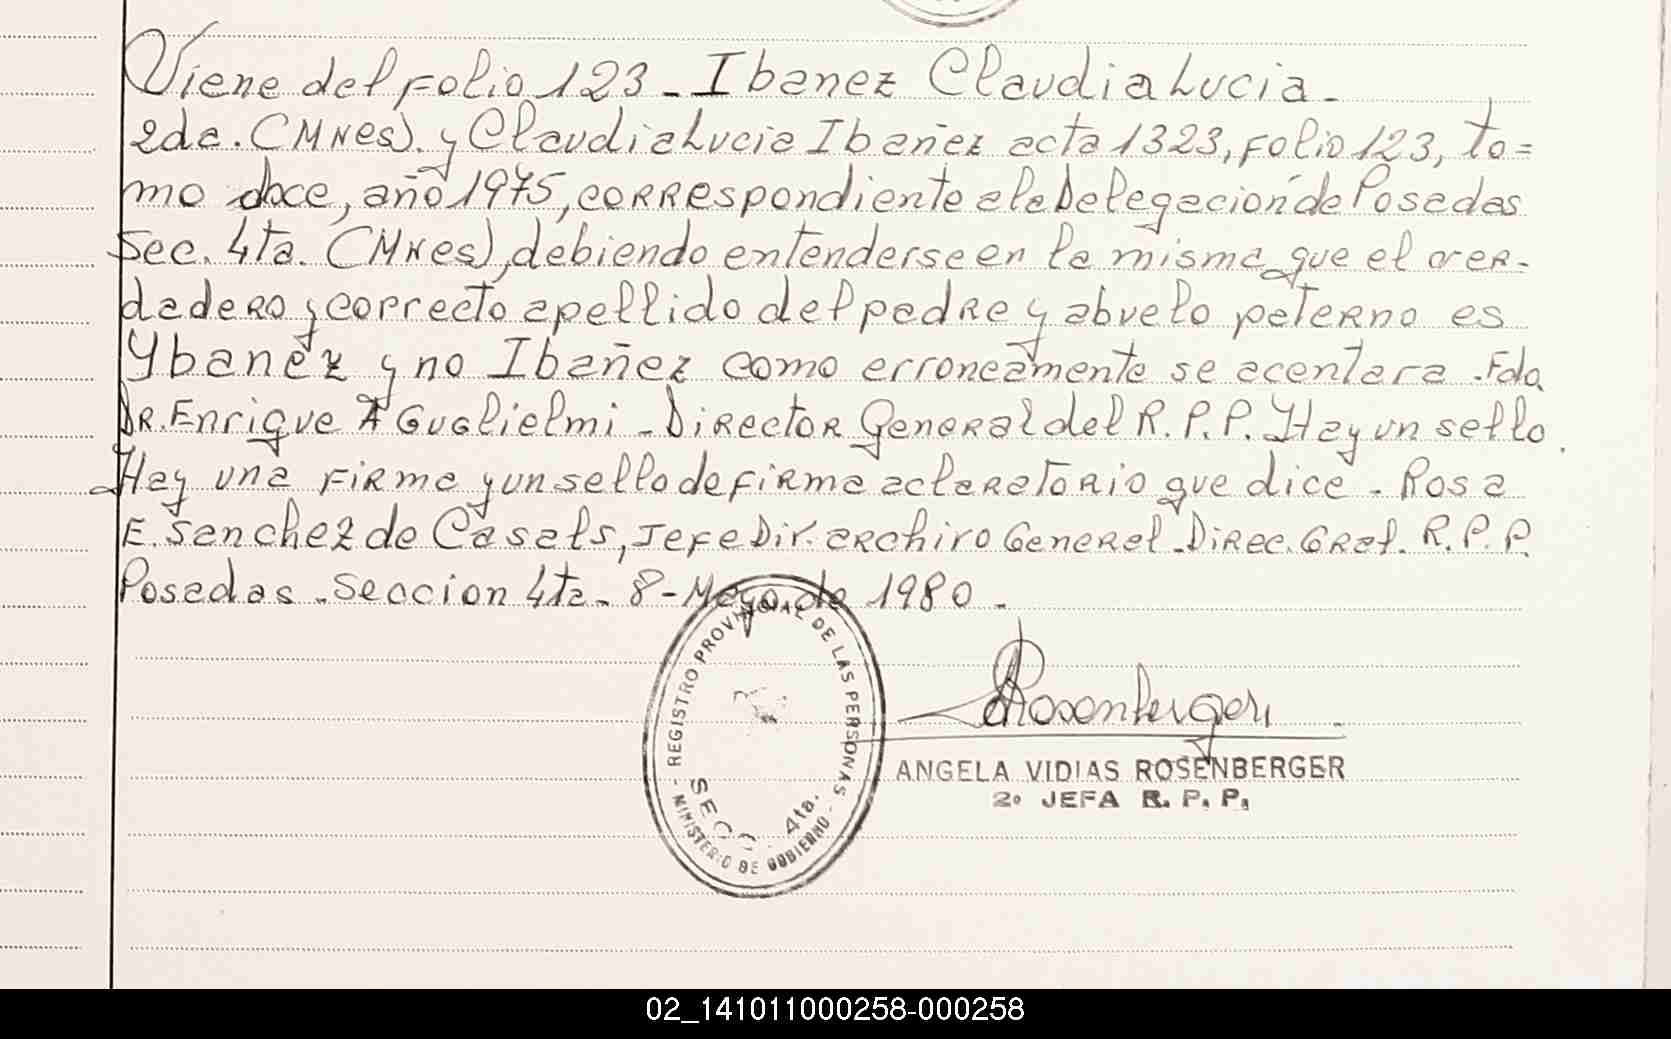 Viene del Folio 123 - Ibanez Claudia Lucia -
2da. (MNes). y Claudia Lucia Ibañez acta 1323, Folio 123, to=
mo doce, año 1975, correspondiente a la Delegación de Posadas
Sec. 4ta. (MNes), debiendo entenderse en la misma que el ver-
dadero y correcto apellido del padre y abuelo paterno es
Ybanez y no Ibañez como erroneamente se acentara - Fdo
DR. Enrique A Guglielmi - Director General del R. P. P. Hay un sello.
Hay una Firma y un sello de Firma aclaratorio que dice - Rosa
E. Sanchez de Casals, Jefe Dir. archivo General - Direc. Gral. R. P. P.
Posadas - Seccion 4ta - 8 - Mayo de 1980 -
- REGISTRO PROVINCIAL DE LAS PERSONAS -
SECC. 4ta.
MINISTERIO DE GOBIERNO
Rosenberger
ANGELA VIDIAS ROSENBERGER
2º JEFA R. P. P.
02_141011000258-000258